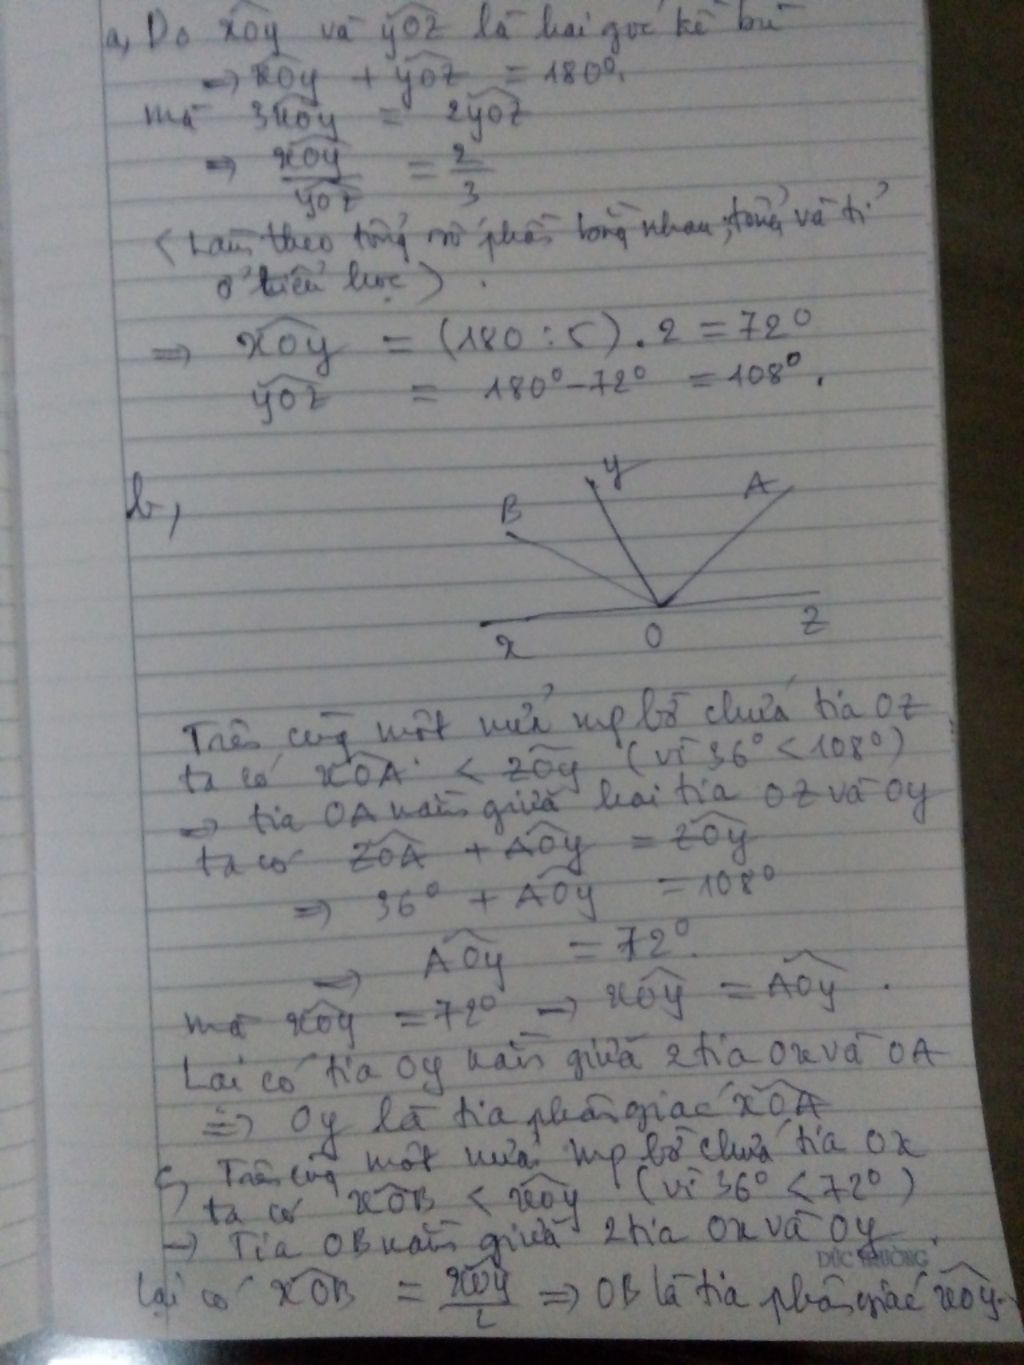 a, Do xOy và yOz là hai góc kề bù
⇒ xOy + yOz = 180°.
mà 3xOy = 2yOz
⇒ xOy/yOz = 2/3
(Làm theo tổng số phần bằng nhau, tổng và tỉ
ở tiểu học).
⇒ xOy = (180 : 5) . 2 = 72°
yOz = 180° - 72° = 108°.
b,
B y A
x O z
Trên cùng một nửa mp bờ chứa tia Oz
ta có xOA < zOy (vì 36° < 108°)
⇒ tia OA nằm giữa hai tia Oz và Oy
ta có zOA + AOy = zOy
⇒ 36° + AOy = 108°
⇒ AOy = 72°.
mà xOy = 72° → xOy = AOy.
Lại có tia Oy nằm giữa 2 tia Ox và OA
⇒ Oy là tia phân giác xOA
c, Trên cùng một nửa mp bờ chứa tia Ox
ta có xOB < xOy (vì 36° < 72°)
→ Tia OB nằm giữa 2 tia Ox và Oy.
Lại có xOB = xOy/2 ⇒ OB là tia phân giác xOy.